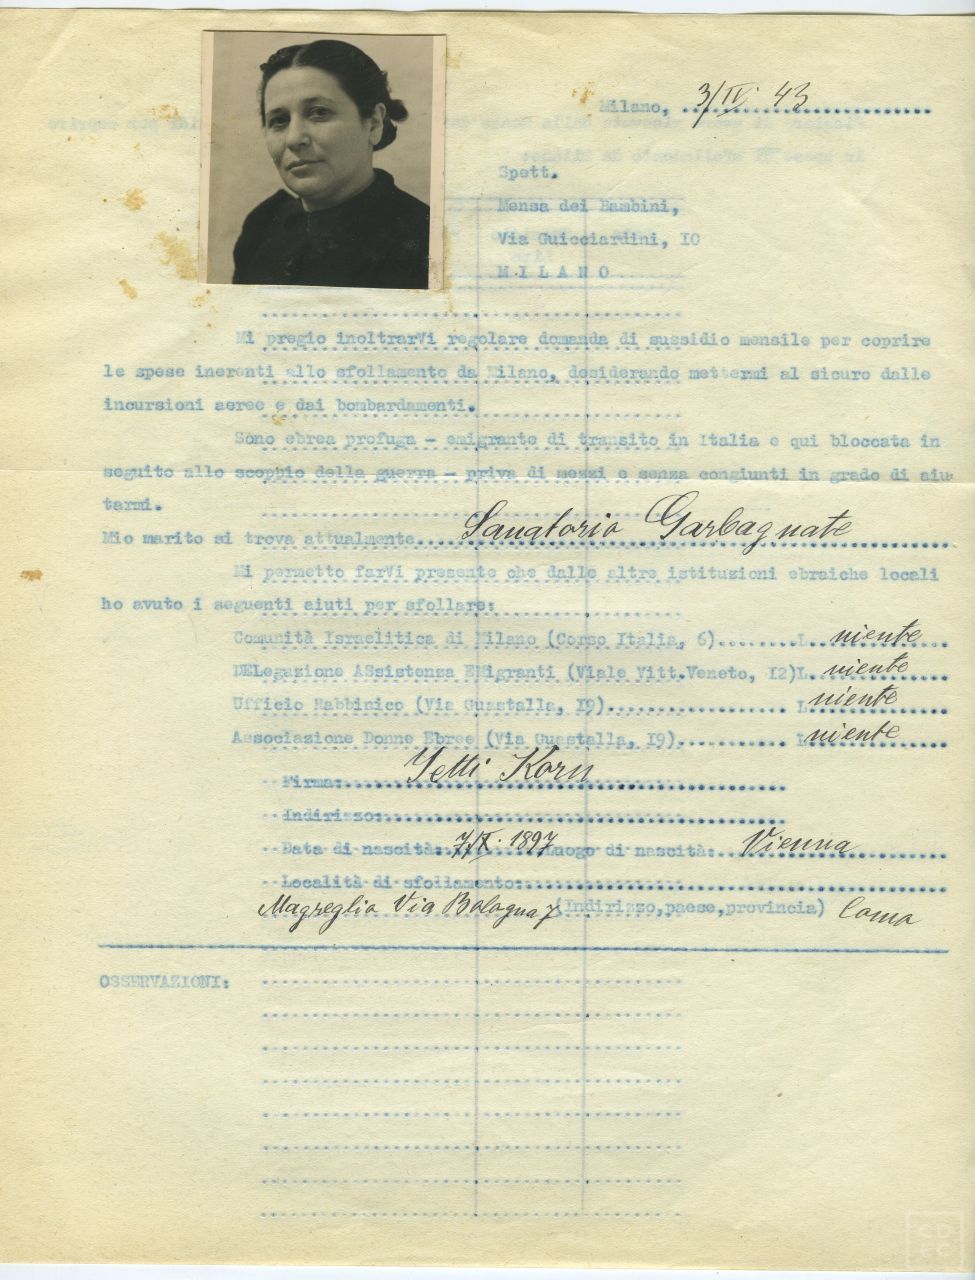 Milano, 3/IV 43
Spett.
Mensa dei Bambini,
Via Guicciardini, IO
M I L A N O
Mi pregio inoltrarVi regolare domanda di sussidio mensile per coprire
le spese inerenti allo sfollamento da Milano, desiderando mettermi al sicuro dalle
incursioni aeree e dai bombardamenti.
Sono ebrea profuga - emigrante di transito in Italia e qui bloccata in
seguito allo scoppio della guerra - priva di mezzi e senza congiunti in grado di aiu
tarmi.
Mio marito si trova attualmente....Sanatorio Garbagnate
Mi permetto farVi presente che dalle altre istituzioni ebraiche locali
ho avuto i seguenti aiuti per sfollare:
Comunità Israelitica di Milano (Corso Italia, 6)........L. niente
DELegazione ASsistenza EMigranti (Viale Vitt.Veneto, I2)L. niente
Ufficio Rabbinico (Via Guastalla, I9)................. L. niente
Associazione Donne Ebree (Via Guastalla, I9).......... L. niente
Firma: Jetti Korn
Indirizzo:
Data di nascità: 7/X. 1897 Luogo di nascità: Vienna
Località di sfollamento:
Magreglio Via Bologna 7 Indirizzo,paese,provincia) Como
OSSERVAZIONI:
CD
EC